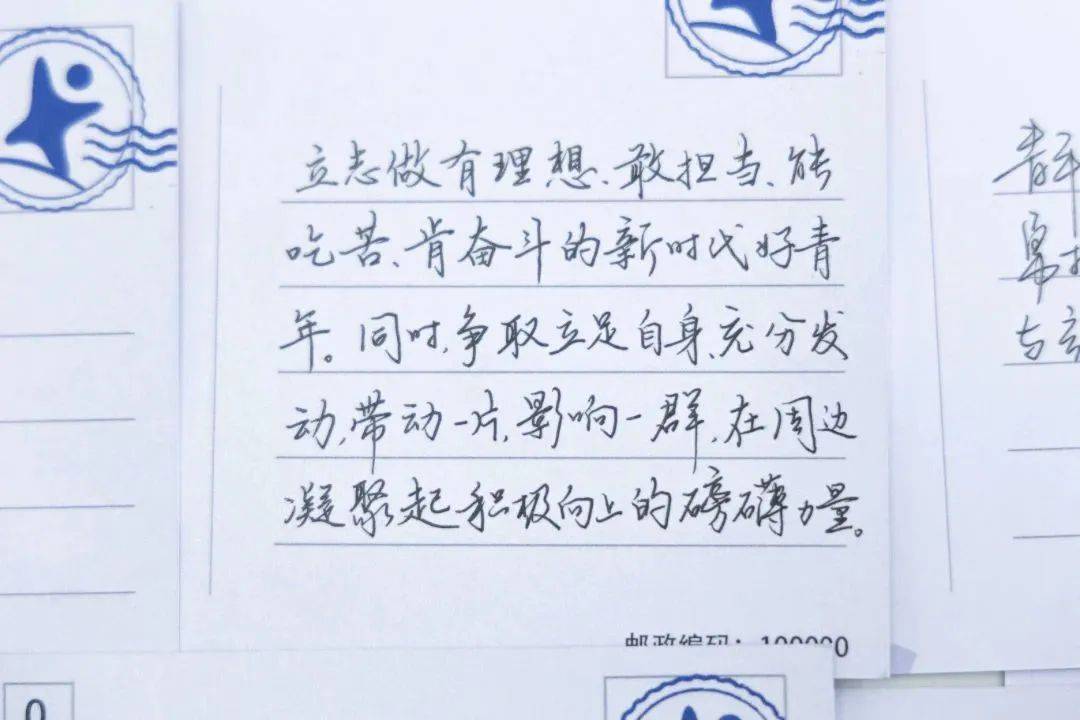 立志做有理想、敢担当、能
吃苦、肯奋斗的新时代好青
年。同时,争取立足自身、充分发
动,带动一片,影响一群,在周边
凝聚起积极向上的磅礴力量。
邮政编码：100000
青年
与
0